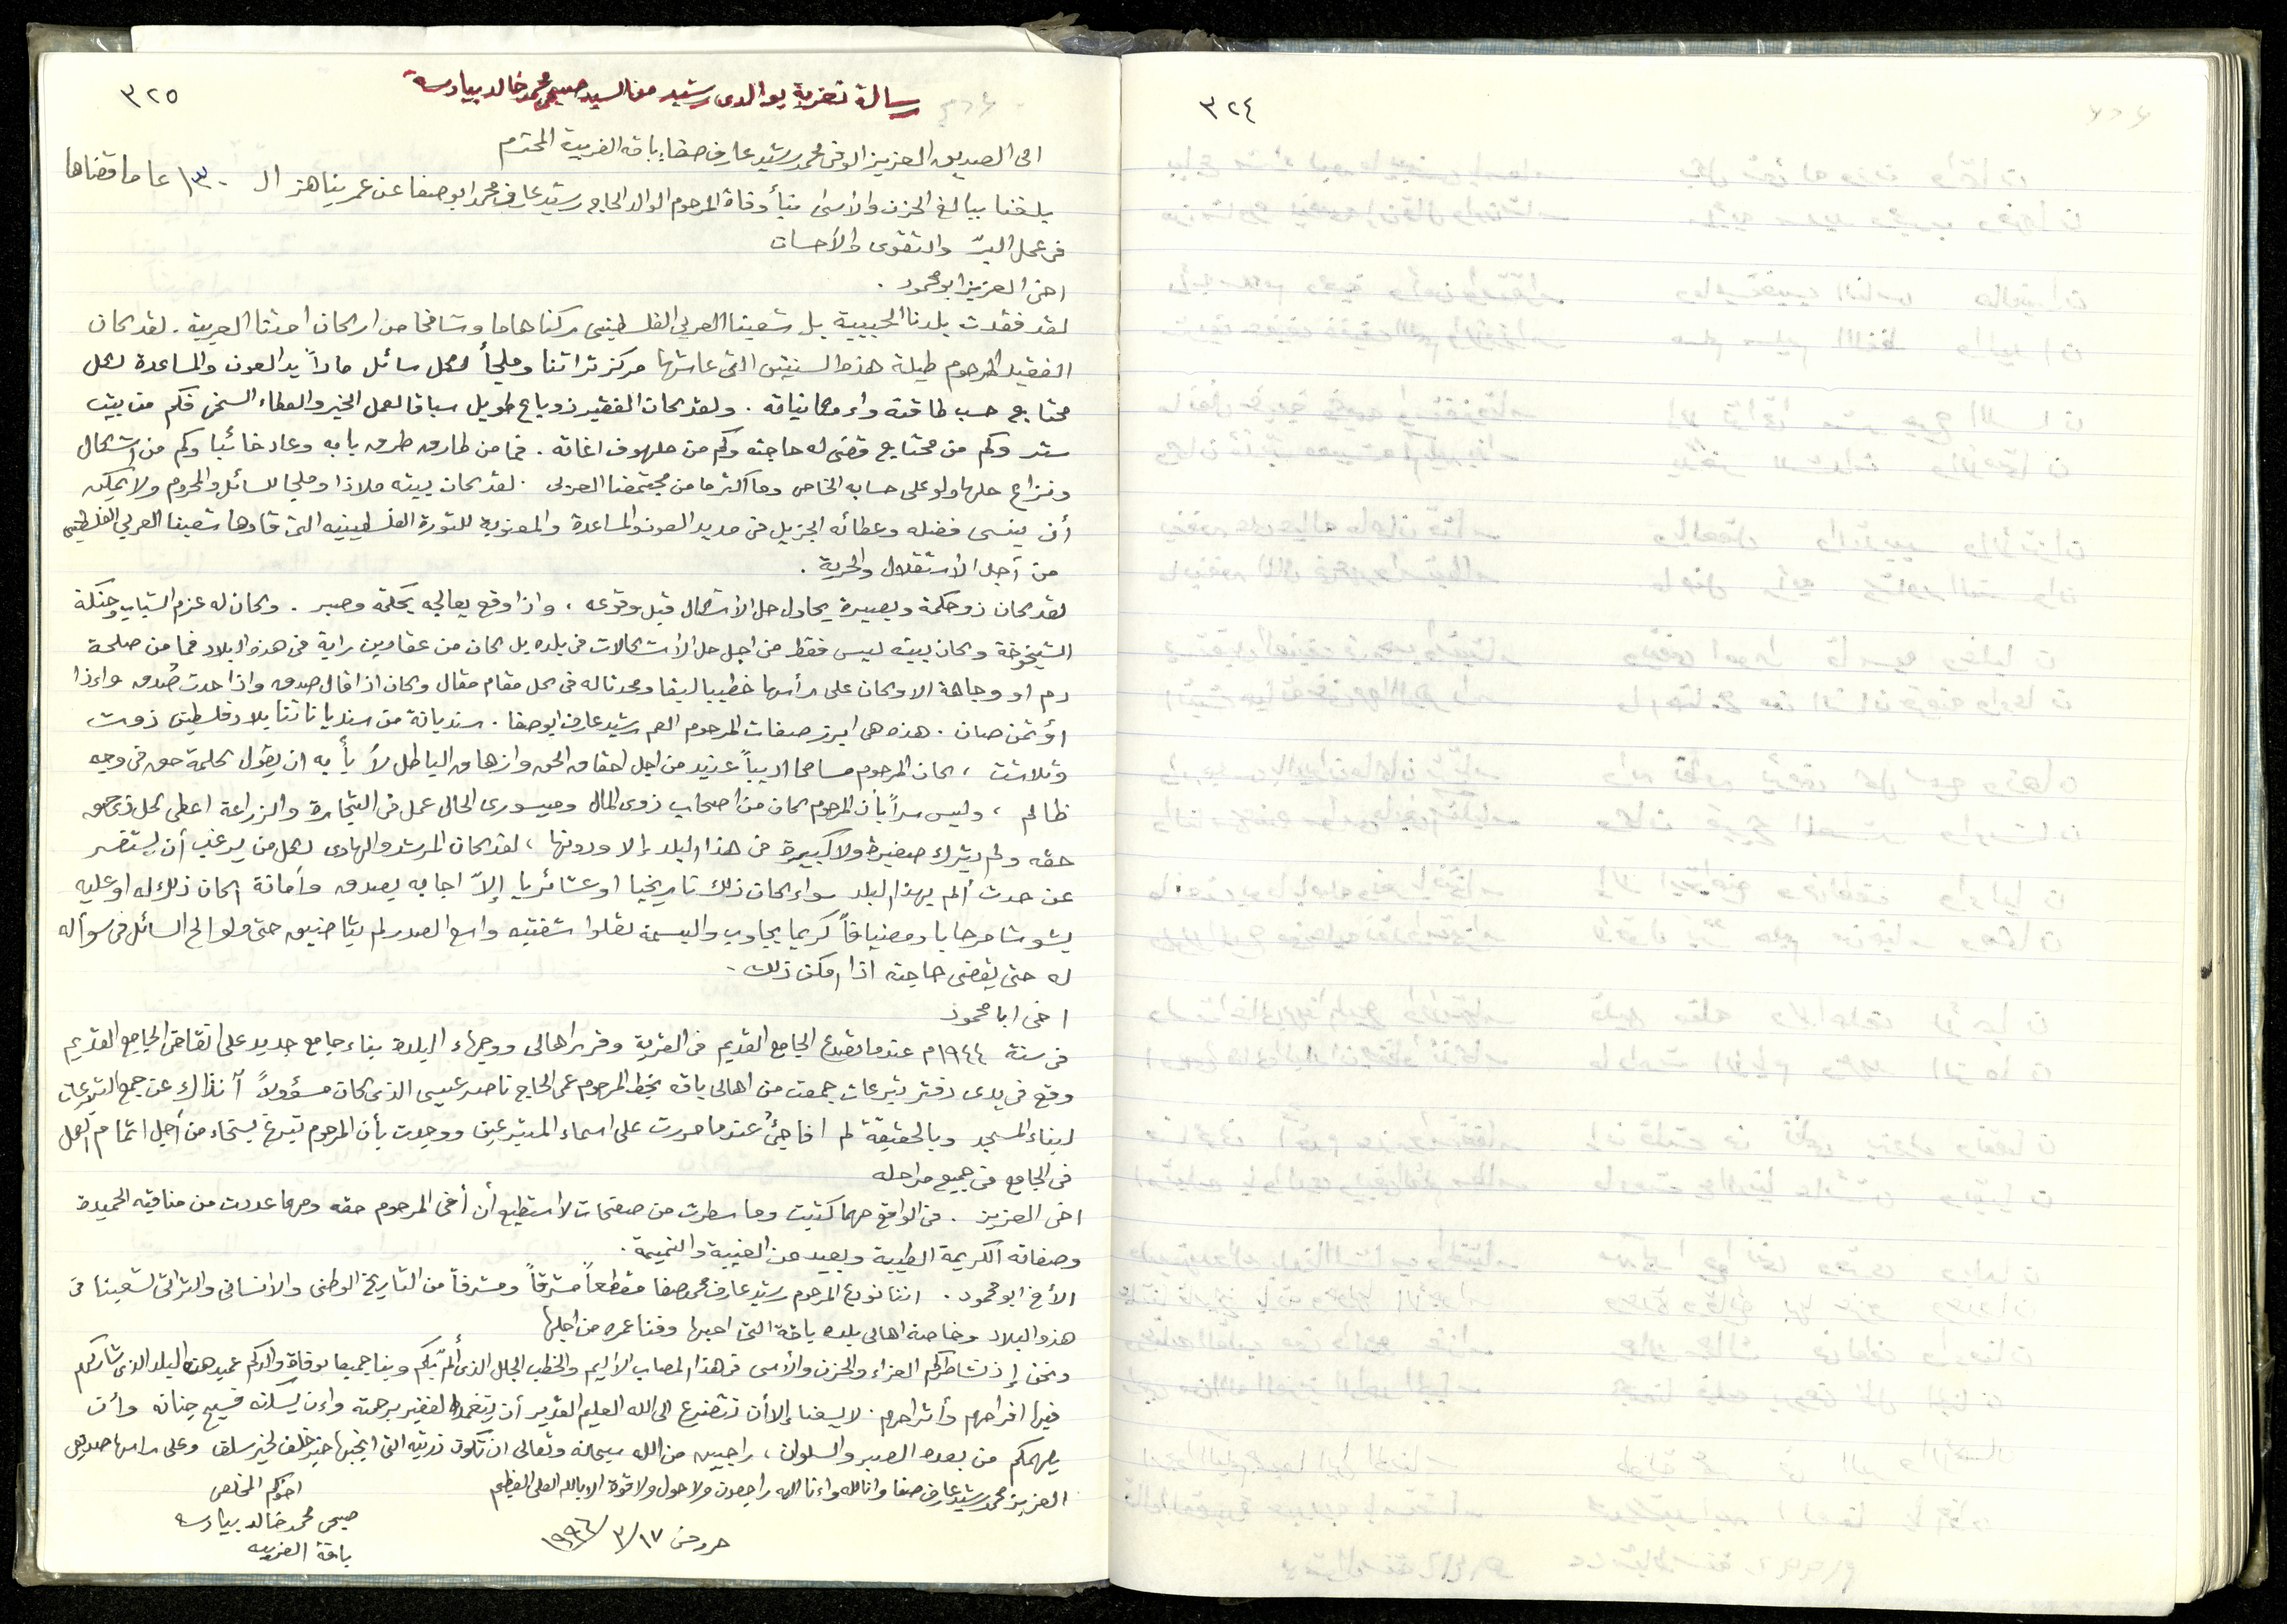 ٣٢٤
٣٢٥
رسالة تعزية بوالدي رشيد من السيد صبحي محمد خالد بيادسه
الى الصديق العزيز الوفي محمد رشيد عارف صفا باقه الغربية المحترم
بلغنا ببالغ الحزن والأسى نبأ وفاة المرحوم الوالد الحاج رشيد عارف محمد ابو صفا عن عمر يناهز ال ١٣٠ عاما قضاها
في عمل البرّ والتقوى والأحسان
اخي العزيز ابو محمود .
لقد فقدت بلدنا الحبيبة بل شعبنا العربي الفلسطيني ركنا هاما وشامخا من اركان امتنا العربية . لقد كان
الفقيد المرحوم طيلة هذه السنين التي عاشها مركز تراثنا وملجأ لكل سائل ماداً يد العون والمساعدة لكل
محتاج حسب طاقته وامكانياته . ولقد كان الفقيد ذو باع طويل سباقا لعمل الخير والعطاء السخي فكم من بيت
ستر وكم من محتاج قضى له حاجته وكم من ملهوف اغاثه . فما من طارق طرق بابه وعاد خائبا وكم من اشكال
ونزاع حلها ولو على حسابه الخاص وما اكثرها من مجتمعنا العربي . لقد كان بيته ملاذا وملجا للسائل والمحروم ولا يمكن
أن ينسى فضله وعطائه الجزيل في مد يد العون والمساعدة والمعنوية للثورة الفلسطينيه التي قادها شعبنا العربي الفلسطيني
من أجل الأستقلال والحرية .
لقد كان ذو حكمة وبصيرة يحاول حل الأشكال قبل وقوعه ، واذا وقع يعالجه بحكمة وصبر . وكان له عزم الشباب وحنكة
الشيخوخة وكان بيته ليس فقط من اجل حل الأشكالات في بلده بل كان من عقادين راية في هذه البلاد فما من صلحة
دم او وجاهة الا وكان على رأسها خطيبا لبقا ومحدثا له في كل مقام مقال وكان اذا قال صدق واذا حدث صُدق واذا
اؤتمن صان . هذه هي ابرز صفات المرحوم العم رشيد عارف ابو صفا . سنديانة من سنديانات بلاد فلسطين ذوت
وتلاشت ، كان المرحوم مسامحا اديباً عنيد من اجل احقاق الحق وازهاق الباطل لا يأبه ان يقول كلمة حق في وجه
ظالم ، وليس سراً بأن المرحوم كان من اصحاب ذوي المال وميسوري الحال عمل في التجارة والزراعة اعطى لكل ذي حق
حقه ولم يترك صغيرة ولا كبيرة في هذا البلد إلا ودونها ، لقد كان المرشد والهادي لكل من يرغب أن يستفسر
عن حدث ألم بهذا البلد سواء كان ذلك تاريخيا او عشائريا إلاّ اجابه بصدق وأمانة اكان ذلك له او عليه
بشوشا مرحابا ومضيافاً كريما يجاوب والبسمة تعلوا شفتيه واسع الصدر لم يتضايق حتى ولو الح السائل في سوأله
له حتى يقضي حاجته اذا امكن ذلك .
اخي ابا محمود
في سنة ١٩٤٤م عندما تصدع الجامع القديم في القرية وقرر اهالي ووجهاء البلدة بناء جامع جديد على انقاض الجامع القديم
وقع في يدي دفتر تبرعات جمعت من اهالي باقه بخط المرحوم عمي الحاج ناصر عيسى الذي كان مسؤولاً آنذاك عن جمع التبرعات
لبناء المسجد وبالحقيقة لم افاجئ عندما مررت على اسماء المتبرعين ووجدت بأن المرحوم تبرع بسخاء من أجل اتمام العمل
في الجامع في جميع مراحله
اخي العزيز . في الواقع مهما كتبت وما سطرت من صفحات لا استطيع أن أفي المرحوم حقه ومهما عددت من مناقبه الحميدة
وصفاته الكريمة الطيبة وبعيد عن الغيبة والنميمة .
الأخ ابو محمود . اننا نودع المرحوم رشيد عارف محمد صفا مقطعاً مشرقاً ومشرفاً من التاريخ الوطني والانساني والتراثي لشعبنا في
هذه البلاد وخاصة اهالي بلده باقة التي احبها وفنا عمره من اجلها
ونحن إذ نشاطركم العزاء والحزن والأسى في هذا المصاب الأليم والخطب الجلل الذي ألمّ بكم وبنا جميعا بوفاة والدكم عميد هذه البلد الذي شاركهم
فيها افراحهم وأتراحهم . لا يسعنا إلا أن نتضرع الى الله العليم القدير أن يتغمد الفقيد برحمته وان يسكنه فسيح جنانه وأن
يلهمكم من بعده الصبر والسلوان ، راجيين من الله سبحانه وتعالى ان تكون ذريته التي انجبها خير خلف لخير سلف وعلى راسها صديقي
العزيز محمد رشيد عارف صفا وانا لله وانا اليه راجعون ولا حول ولا قوة الا بالله العلي العظيم
حرر في ١٧/٣/١٩٩٦
اخوكم المخلص
صبحي محمد خالد بيادسه
باقة الغربيه